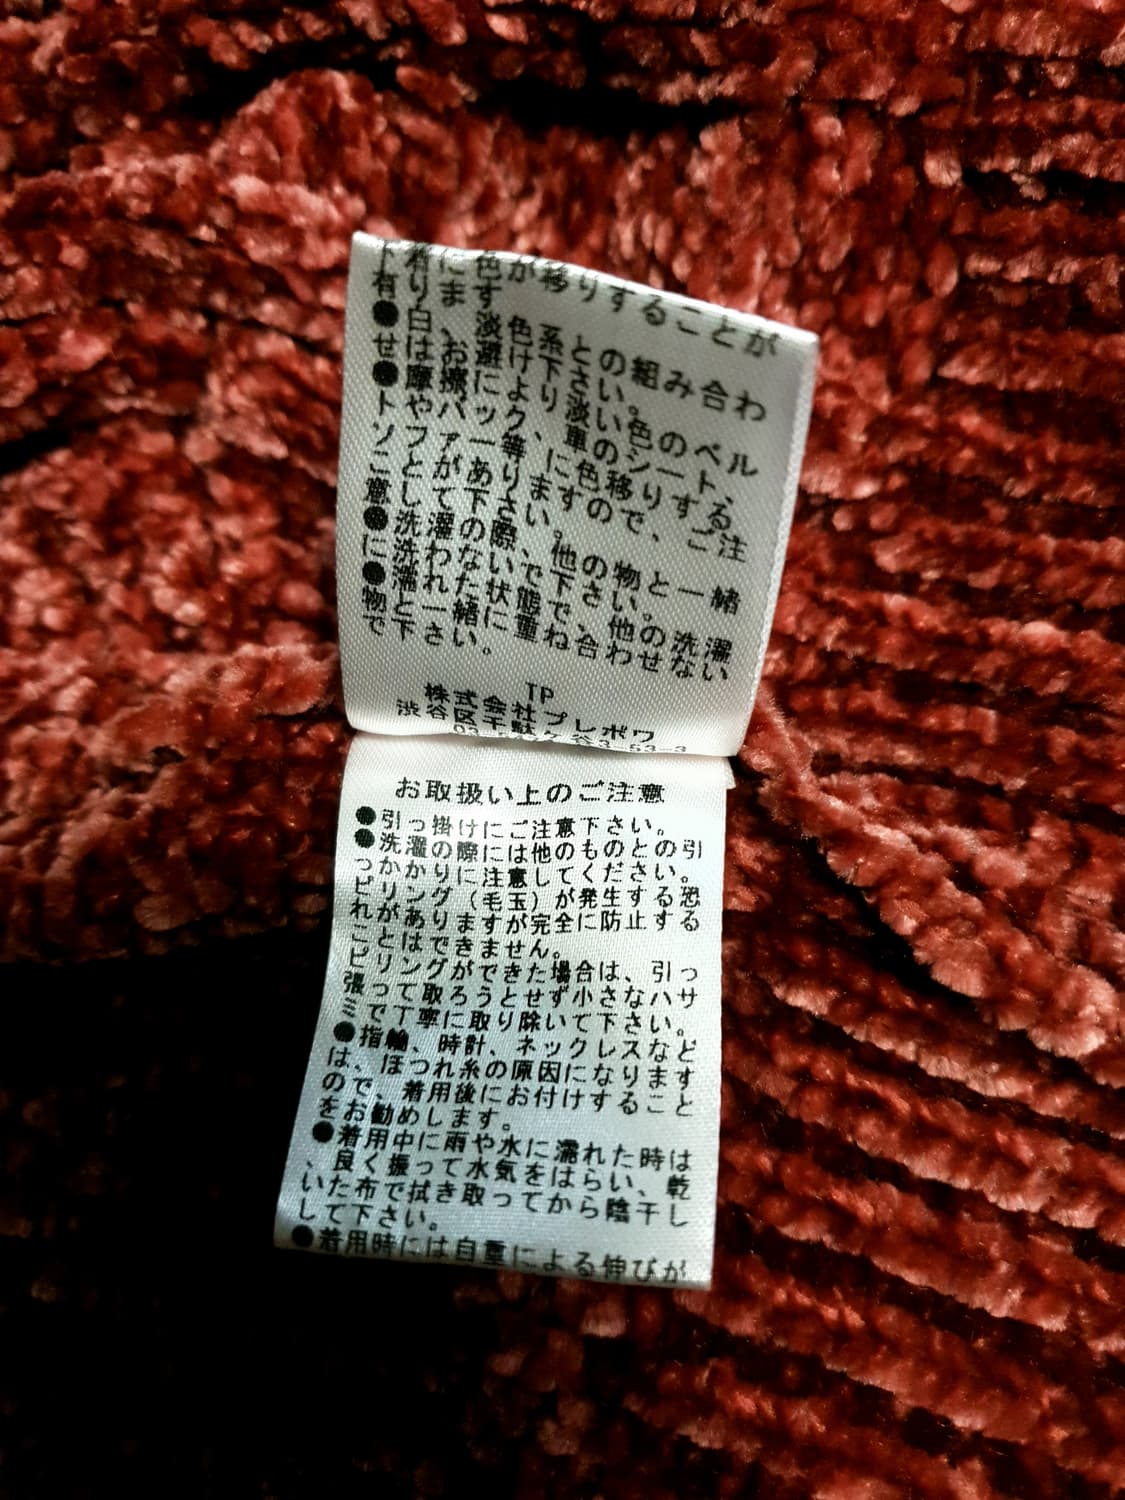 下着に色が移りすることが
有ります
●白、淡色系との組み合わ
せはお避け下さい。
●摩擦により淡い色のベル
トやバック、車のシート、
ソファー等に色移りする
ことがありますので、ご注
意して下さい。
●洗濯の際、他の物と一緒
に洗わないで下さい。
●濡れた状態で、他の洗濯
物と一緒に重ね合わせない
で下さい。
TP
株式会社プレボワ
渋谷区千駄ヶ谷3-53-3
お取扱い上のご注意
●引っ掛けにご注意下さい。
●洗濯の際には他のものとの引
っかかりに注意してください。
ピリング（毛玉）が発生する恐
れがありますが完全に防止する
ことはできません。
ピリングができた場合は、引っ
張って取ろうとせず小さなハサ
ミで丁寧に取り除いて下さい。
●指輪、時計、ネックレスなど
は、ほつれ糸の原因になります
ので、着用後にお付けすること
をお勧めします。
●着用中に雨や水に濡れた時は
、良く振って水気をはらい、乾
いた布で拭き取ってから陰干し
して下さい。
●着用時には自重による伸びが